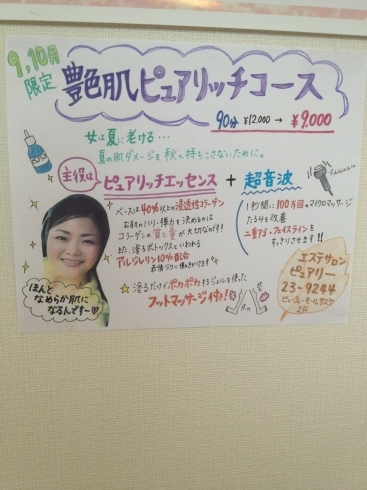 9,10月
限定
艶肌ピュアリッチコース
90分 ¥12000 → ¥9,000
女は夏に老ける…
夏の肌ダメージを秋へ持ちこさないために。
主役は ピュアリッチエッセンス + 超音波
ベースは40%以上の浸透性コラーゲン
お肌のハリ・弾力を決めるのは
コラーゲンの質と量が大切なのです!
また、塗るボトックスといわれる
アルジレリン10%配合
表情ジワに働きかけます
☆塗るだけでポカポカするジェルを使った
フットマッサージ付き!
1秒間に100万回のマイクロマッサージ
たるみを改善
二重アゴ・フェイスラインを
すっきりさせます!!
ほんと
なめらか肌に
なるんですー♥
エステサロン
ピュアリー
23-9244
2F